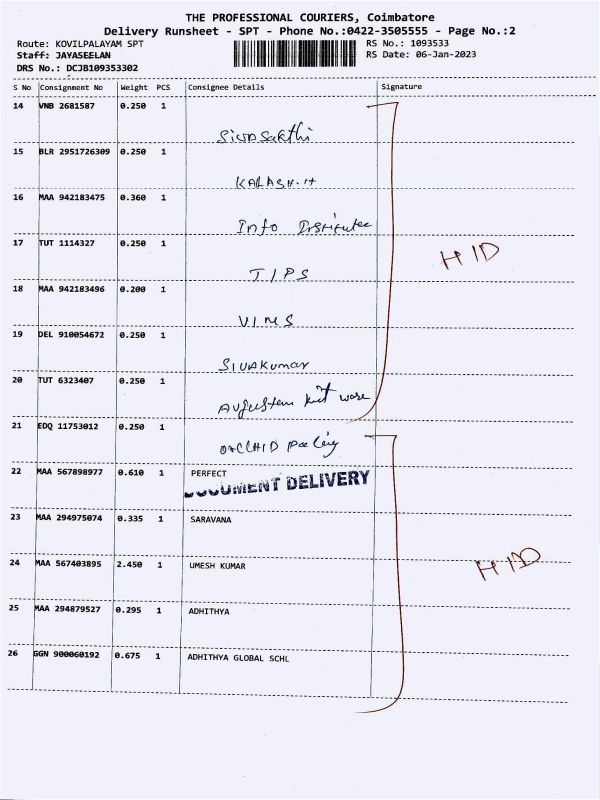 THE PROFESSIONAL COURIERS, Coimbatore
Delivery Runsheet - SPT - Phone No.:0422-3505555 - Page No.:2
Route: KOVILPALAYAM SPT RS No.: 1093533
Staff: JAYASEELAN RS Date: 06-Jan-2023
DRS No.: DCJB109353302
S No Consignment No Weight PCS Consignee Details Signature
14 VNB 2681587 0.250 1
Sivasakthi
15 BLR 2951726309 0.250 1
16 MAA 942183475 0.360 1
Info
17 TUT 1114327 0.250 1
TIPS
18 MAA 942183496 0.200 1
VIMS
19 DEL 910054672 0.250 1
Sivakumar
20 TUT 6323407 0.250 1
21 EDQ 11753012 0.250 1
22 MAA 567898977 0.610 1 PERFECT
DOCUMENT DELIVERY
23 MAA 294975074 0.335 1 SARAVANA
24 MAA 567403895 2.450 1 UMESH KUMAR
25 MAA 294879527 0.295 1 ADHITHYA
26 GGN 900060192 0.675 1 ADHITHYA GLOBAL SCHL